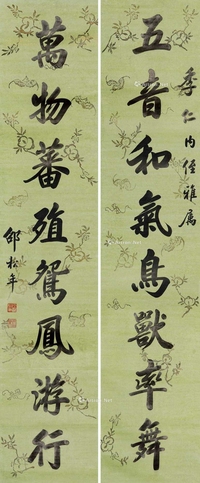 季仁內侄雅屬
五音和氣鳥獸率舞
萬物蕃殖鴛鳳游行
邵松年